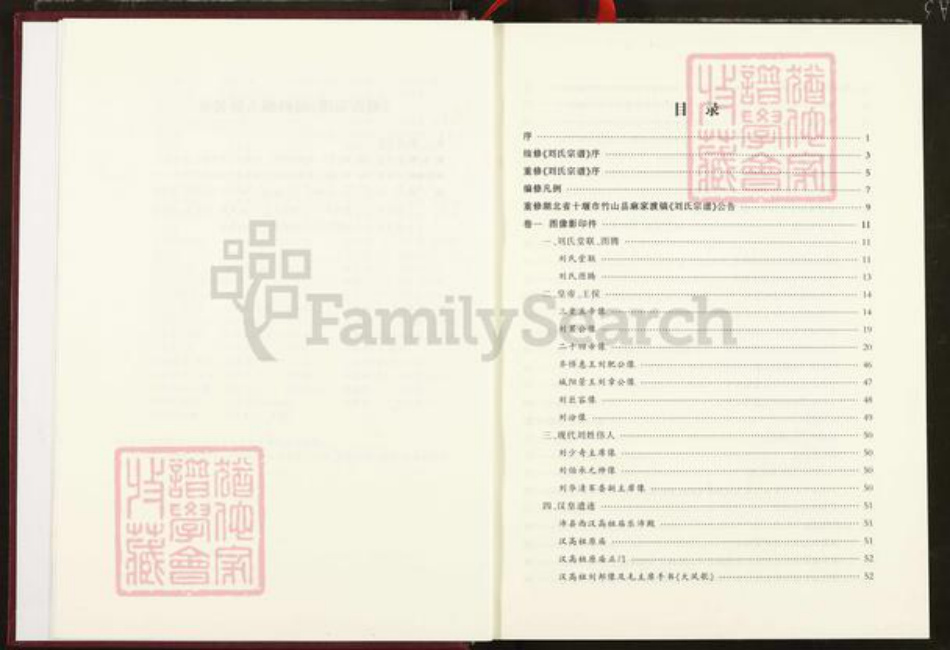 目 录
序 1
续修《刘氏宗谱》序 3
重修《刘氏宗谱》序 5
编修凡例 7
重修湖北省十堰市竹山县麻家渡镇《刘氏宗谱》公告 9
卷一 图像影印件 11
一、刘氏堂联、图腾 11
刘氏堂联 11
刘氏图腾 13
二、皇帝、王侯 14
三皇五帝像 14
刘累公像 19
二十四帝像 20
齐悼惠王刘肥公像 46
城阳景王刘章公像 47
刘巨容像 48
刘汾像 49
三、现代刘姓伟人 50
刘少奇主席像 50
刘伯承元帅像 50
刘华清军委副主席像 50
四、汉皇遗迹 51
沛县西汉高祖庙乐沛殿 51
汉高祖原庙 51
汉高祖原庙正门 52
汉高祖刘邦像及毛主席手书《大风歌》 52
FamilySearch